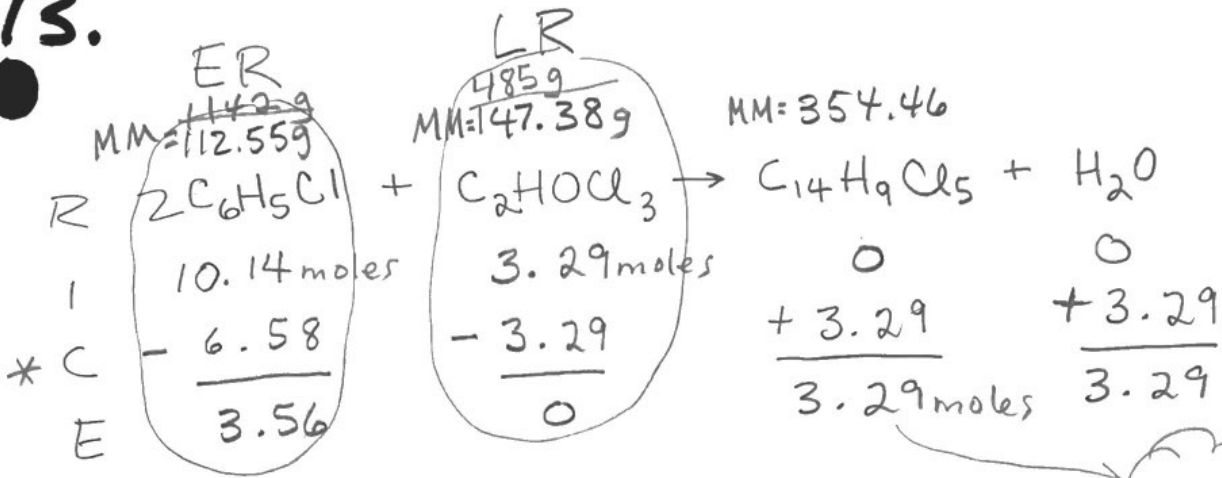 13.
ER LR
1142 g 485 g
MM=112.55g MM=147.38g MM=354.46
R 2C₆H₅Cl + C₂HOCl₃ → C₁₄H₉Cl₅ + H₂O
I 10.14 moles 3.29 moles 0 0
* C - 6.58 - 3.29 + 3.29 + 3.29
E 3.56 0 3.29 moles 3.29